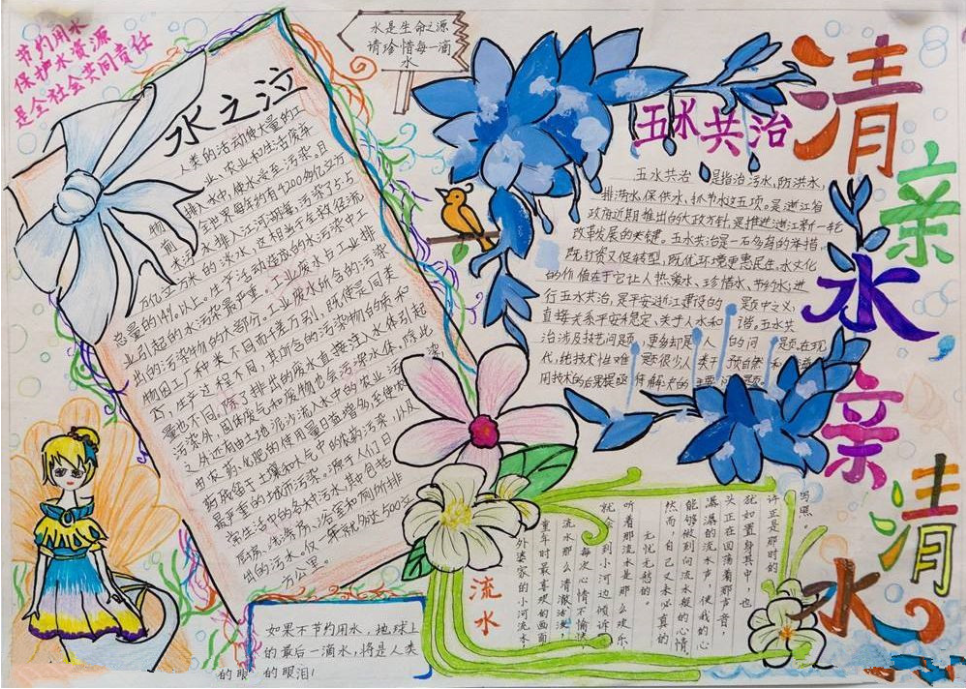 节约用水
保护水资源
是全社会共同责任
水之泣
人类的活动使大量的工
业、农业和生活废弃
物排入水中,使水受到污染。目
前,全世界每年约有4200多亿立方
米污水排入江河湖海,污染了5.5
万亿立方米的淡水,这相当于全球径流
总量的14%以上。生产活动造成的水污染中工
业引起的水污染最严重。工业废水占工业排
出的污染物的大部分。工业废水所含的污染
物因工厂种类不同而千差万别,既使是同类
工厂,生产过程不同,其所含的污染物的质和
量也不同。除了排出的废水直接注入水体引起
污染外,固体废气和废物也会污染水体。除此
之外还有由土地泥沙流入水中的农业污
由农药、化肥的使用量日益增多至使
药残留于土壤和水气中的农药污染,以及
最严重的城市污染。源于人们日
常生活中的各种污水,其中包括
厨房、洗涤房、浴室和厕所排
出的污水。仅 年就多达500立
方公里。
水是生命之源
请珍惜每一滴
水
五水共治
五水共治 是指治污水,防洪水,
排涝水,保供水,抓节水这五项。是浙江省
政府近期推出的大政方针,是推进浙江新一轮
改革发展的关键。五水共治是一石多鸟的举措
既扩投资又促转型,既优环境更惠民生。水文化
的价值在于它让人热爱水、珍惜水、节约水;进
行五水共治,是平安浙江建设的 题中之义,
直接关系平安稳定、关乎人水和 谐。五水共
治涉及技艺问题,更多却是 人的问 题。在现
代,纯技术性难 题很少人类于 预自然和
用技术的后果 问题。
清
亲
水
亲
清
水
流水
写照。
许正是那时的
犹如置身其中,也
头正在回荡着那声音,
潺潺的流水声,使我的心
能够做到问流水般的心情,
然而,自己又未必真的
无忧无愁的。
听着那流水是那么欢乐、
就会 到小河边倾诉,
每次心情不愉快
流水那么清澈
童年时最喜欢的画面
外婆家的小河流水,
如果不节约用水,地球上
的最后一滴水,将是人类
的眼泪!
的眼